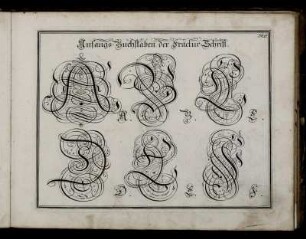 Anfangs-Buchstaben der Fractur-Schrifft.
A. B. C.
D. E. F.